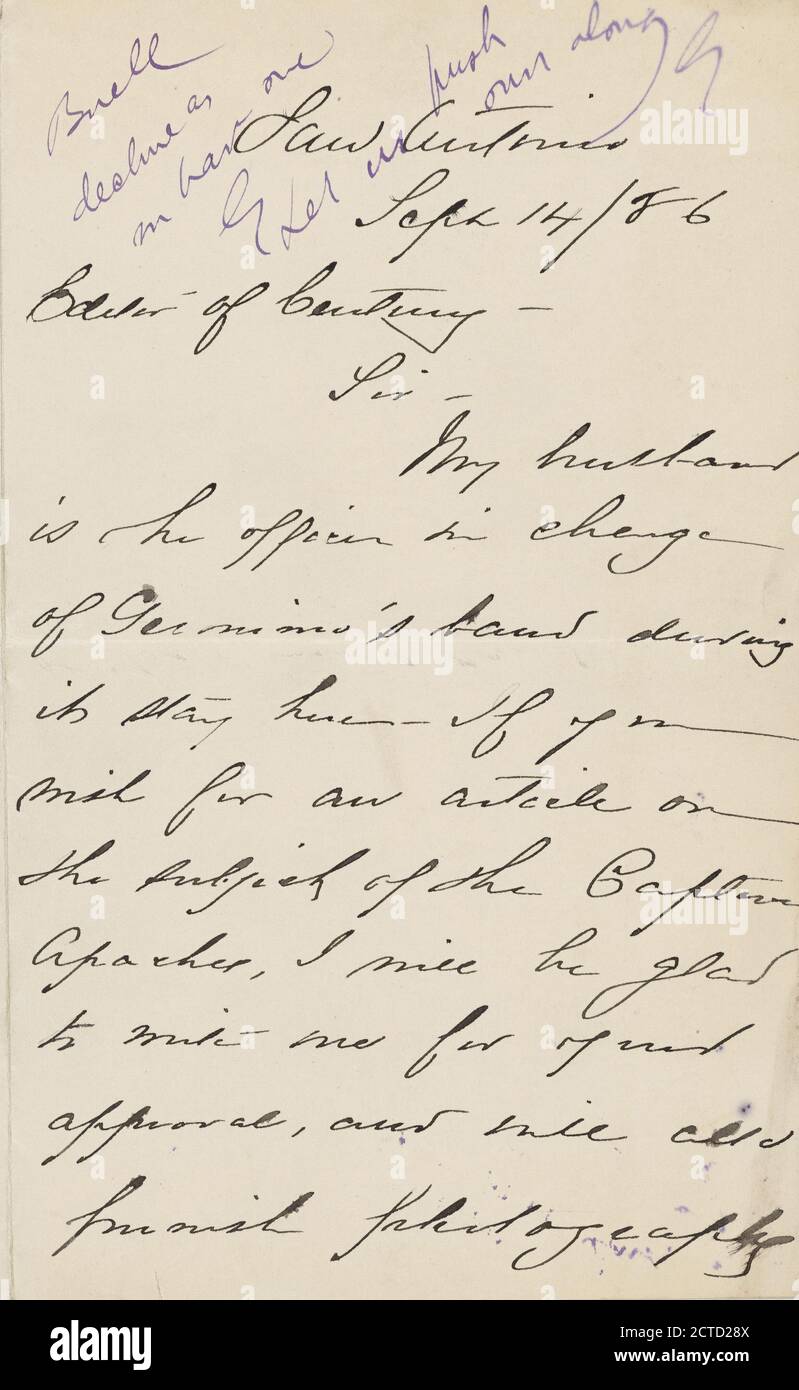 Buell
decline as
we have one
G
Let us push
ours along
G
San Antonio
Sept 14/86
Editor of Century –
Sir –
My husband
is the officer in charge
of Geronimo's band during
its stay here – If you
wish for an article on
the subject of the Captive
Apaches, I will be glad
to write one for your
approval, and will also
furnish photographs
alamy
Image ID: 2CTD28X
www.alamy.com